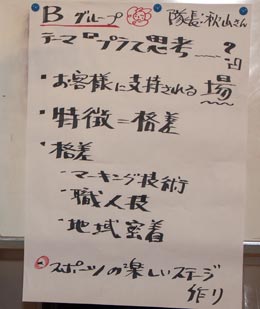 Bグループ 隊長:秋山さん
テーマ『プラス思考 ?』
・お客様に支持される場
・特徴=格差
・格差
・マーキング技術
・職人技
・地域密着
スポーツの楽しいステージ
作り